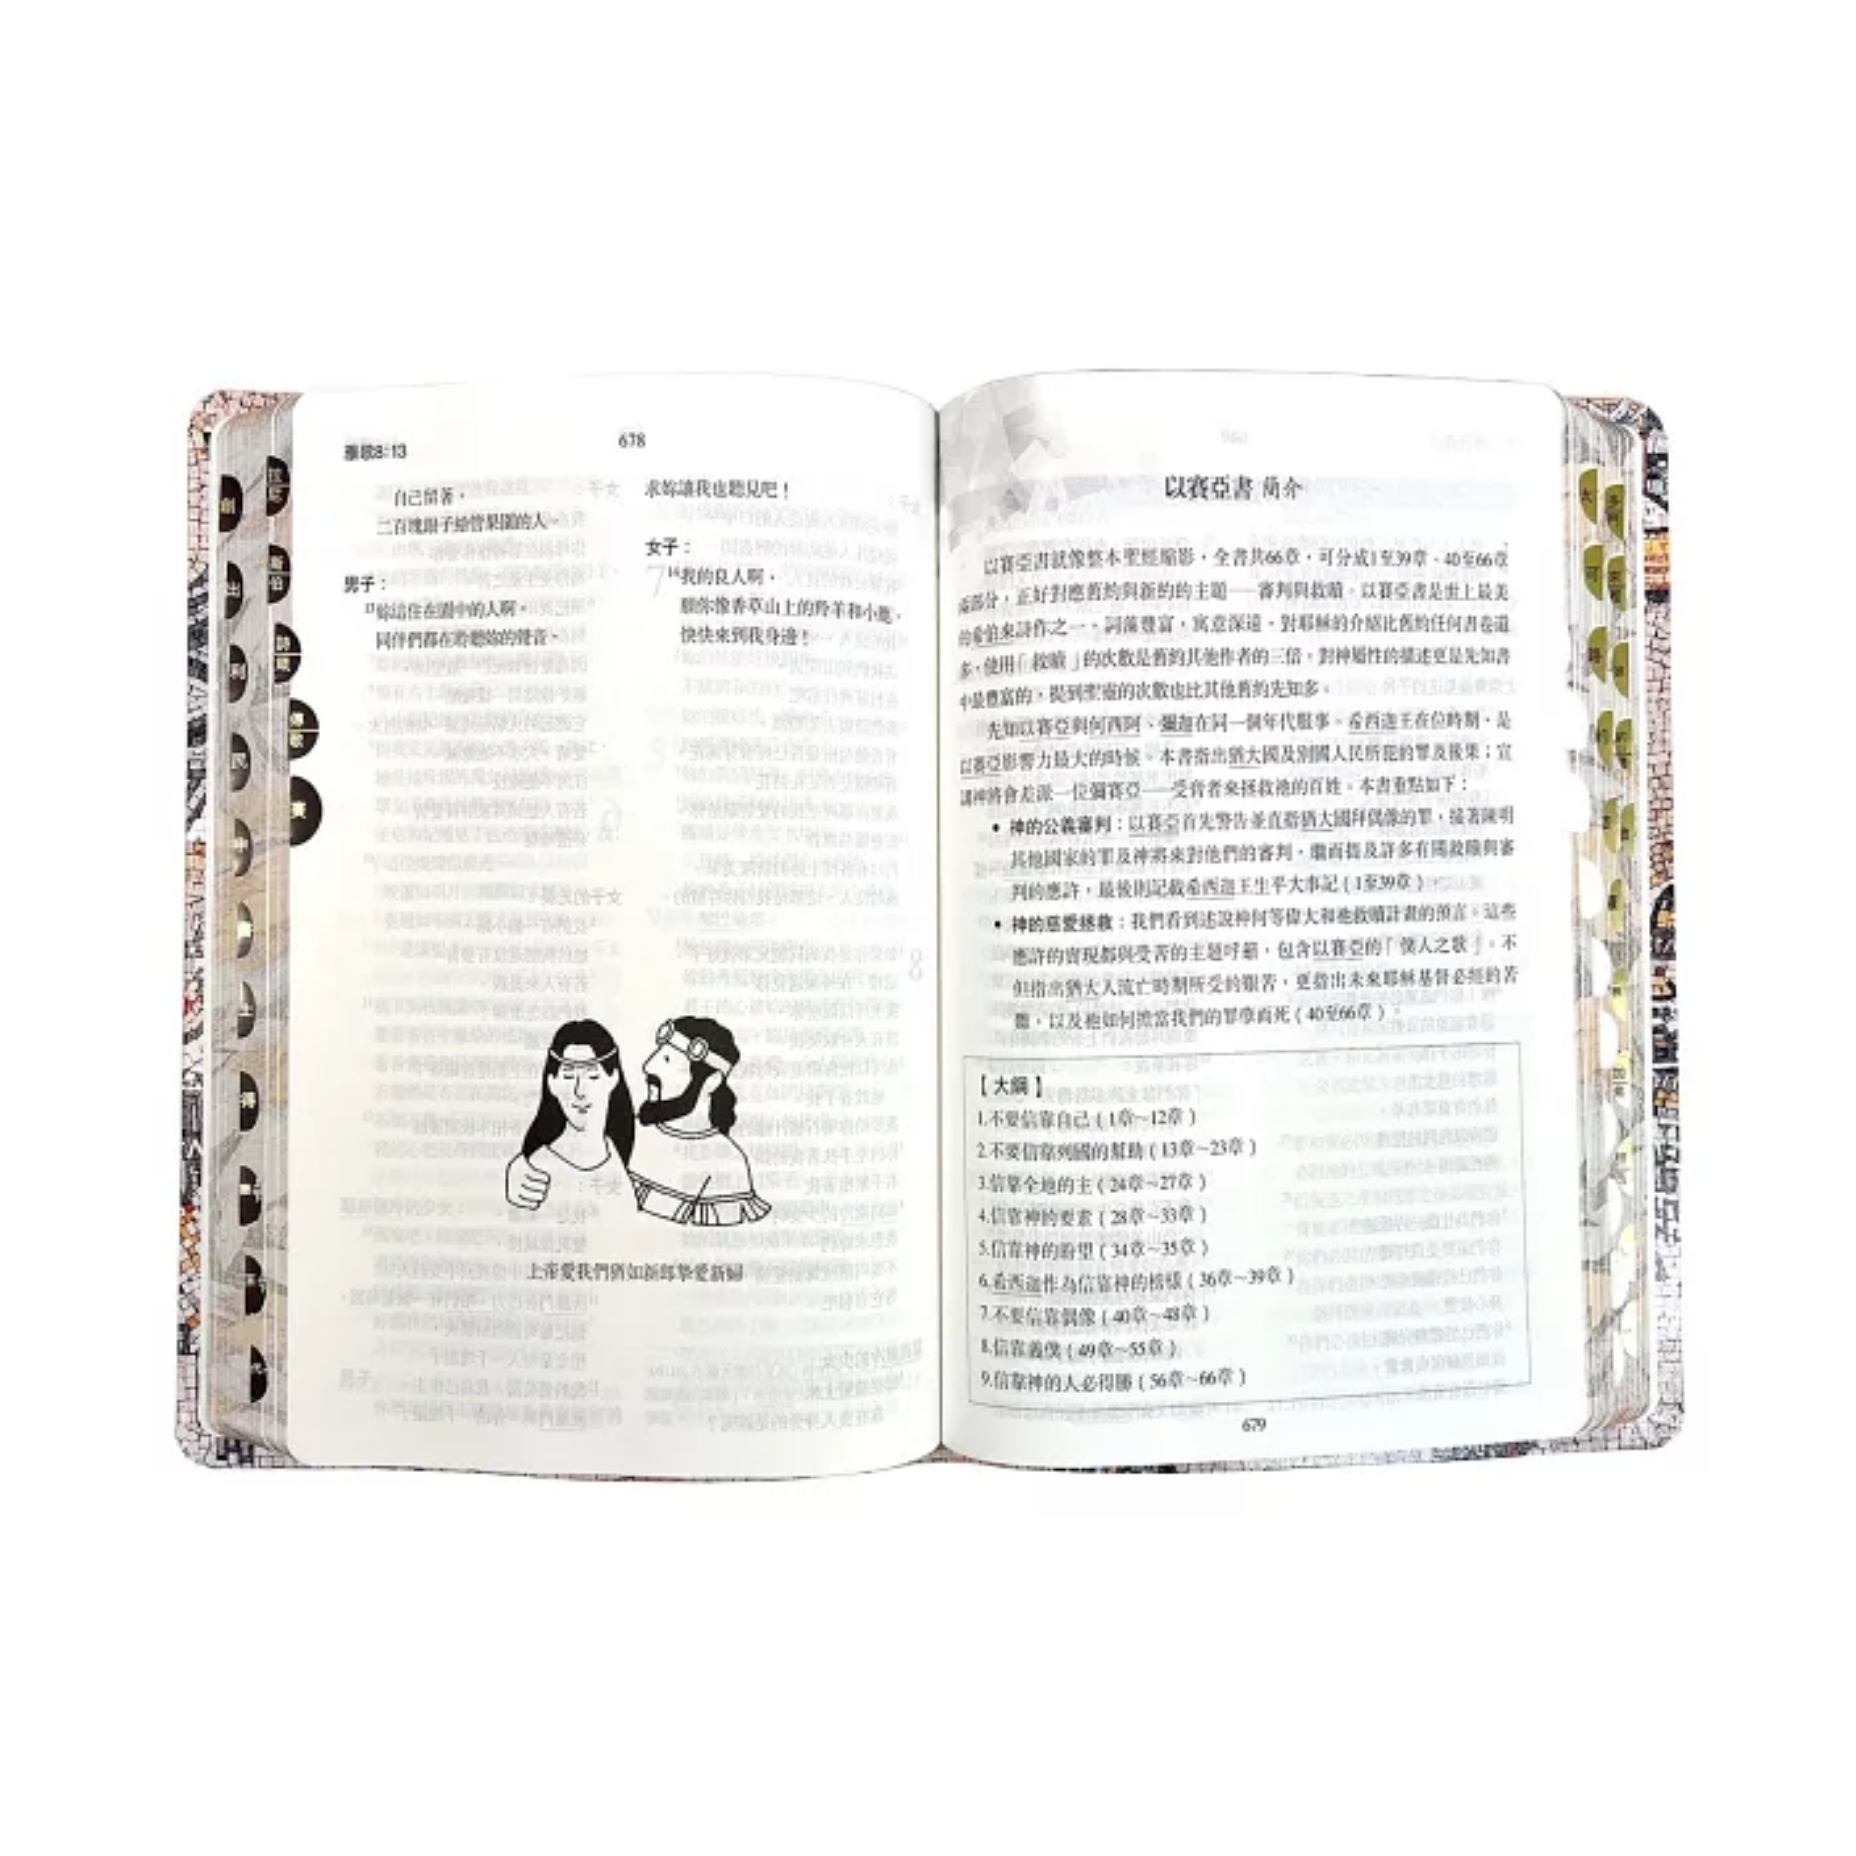 雅歌8:13
678
自己留著，
二百塊銀子給管果園的人。
男子：
13妳這住在園中的人啊，
同伴們都在聆聽妳的聲音，
求妳讓我也聽見吧！
女子：
14我的良人啊，
願你像香草山上的羚羊和小鹿，
快快來到我身邊！
上帝愛我們猶如新郎摯愛新婦
以賽亞書 簡介
以賽亞書就像整本聖經縮影，全書共66章，可分成1至39章、40至66章
兩部分，正好對應舊約與新約的主題——審判與救贖。以賽亞書是世上最美
的希伯來詩作之一，詞藻豐富，寓意深遠。對耶穌的介紹比舊約任何書卷還
多，使用「救贖」的次數是舊約其他作者的三倍，對神屬性的描述更是先知書
中最豐富的，提到聖靈的次數也比其他舊約先知多。
先知以賽亞與何西阿、彌迦在同一個年代服事。希西迦王在位時期，是
以賽亞影響力最大的時候。本書指出猶大國及別國人民所犯的罪及後果；宣
講神將會差派一位彌賽亞——受膏者來拯救祂的百姓。本書重點如下：
• 神的公義審判：以賽亞首先警告並直指猶大國拜偶像的罪，接著陳明
其他國家的罪及神將來對他們的審判，繼而提及許多有關救贖與審
判的應許，最後則記載希西迦王生平大事記（1至39章）。
• 神的慈愛拯救：我們看到述說神何等偉大和祂救贖計畫的預言。這些
應許的實現都與受苦的主題呼籲，包含以賽亞的「僕人之歌」。不
但指出猶大人流亡時期所受的艱苦，更指出未來耶穌基督必經的苦
難，以及祂如何擔當我們的罪孽而死（40至66章）。
【大綱】
1.不要信靠自己（1章～12章）
2.不要信靠列國的幫助（13章～23章）
3.信靠全地的主（24章～27章）
4.信靠神的要素（28章～33章）
5.信靠神的盼望（34章～35章）
6.希西迦作為信靠神的榜樣（36章～39章）
7.不要信靠偶像（40章～48章）
8.信靠義僕（49章～55章）
9.信靠神的人必得勝（56章～66章）
679
創
出
利
民
申
書
士
得